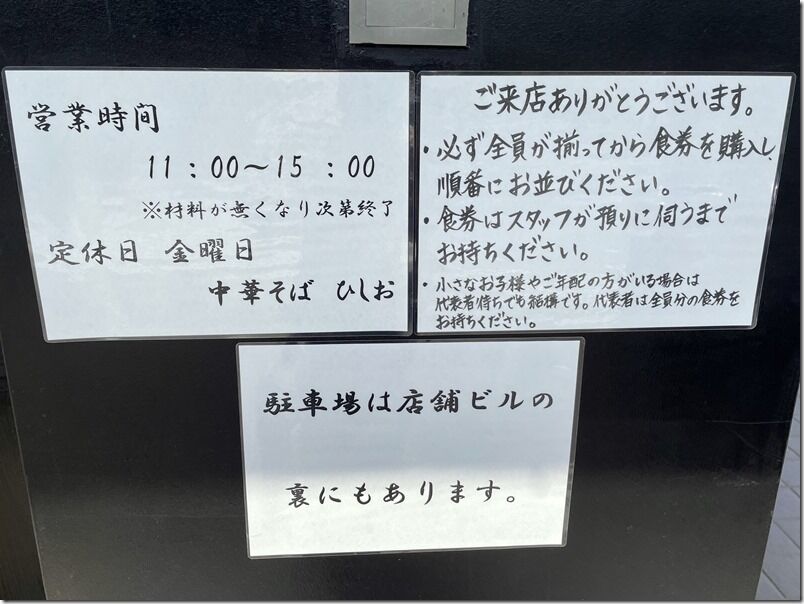 営業時間
11：00〜15：00
※材料が無くなり次第終了
定休日 金曜日
中華そば ひしお
ご来店ありがとうございます。
・必ず全員が揃ってから食券を購入し、
順番にお並びください。
・食券はスタッフが預りに伺うまで
お待ちください。
・小さなお子様やご年配の方がいる場合は
代表者待ちでも結構です。代表者は全員分の食券を
お持ちください。
駐車場は店舗ビルの
裏にもあります。